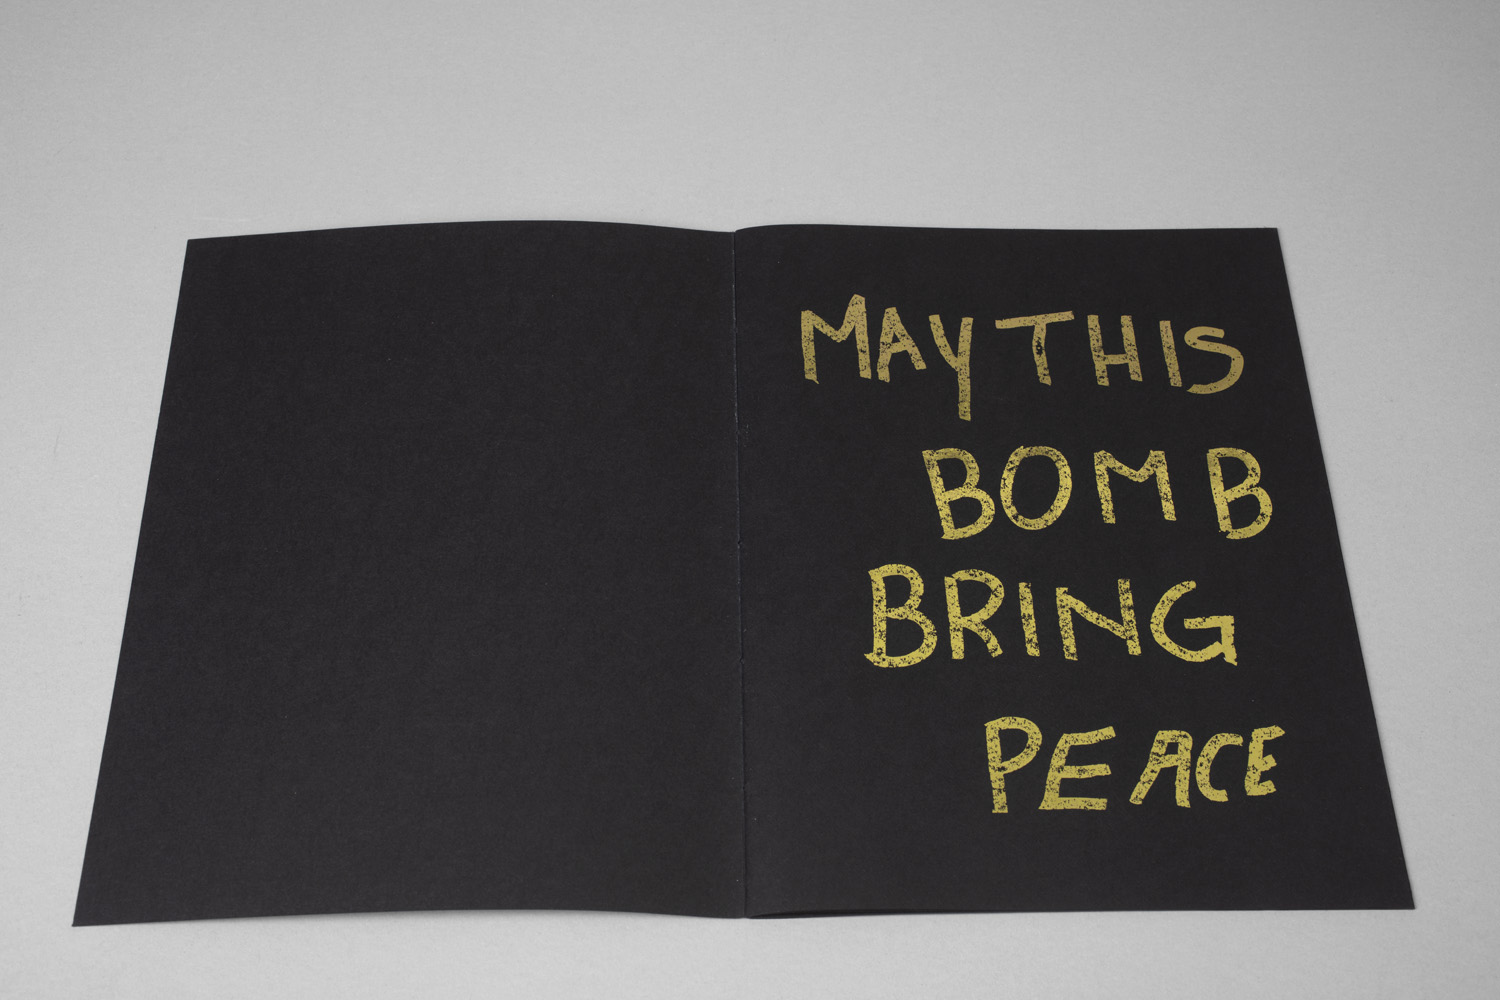 MAY THIS
BOMB
BRING
PEACE